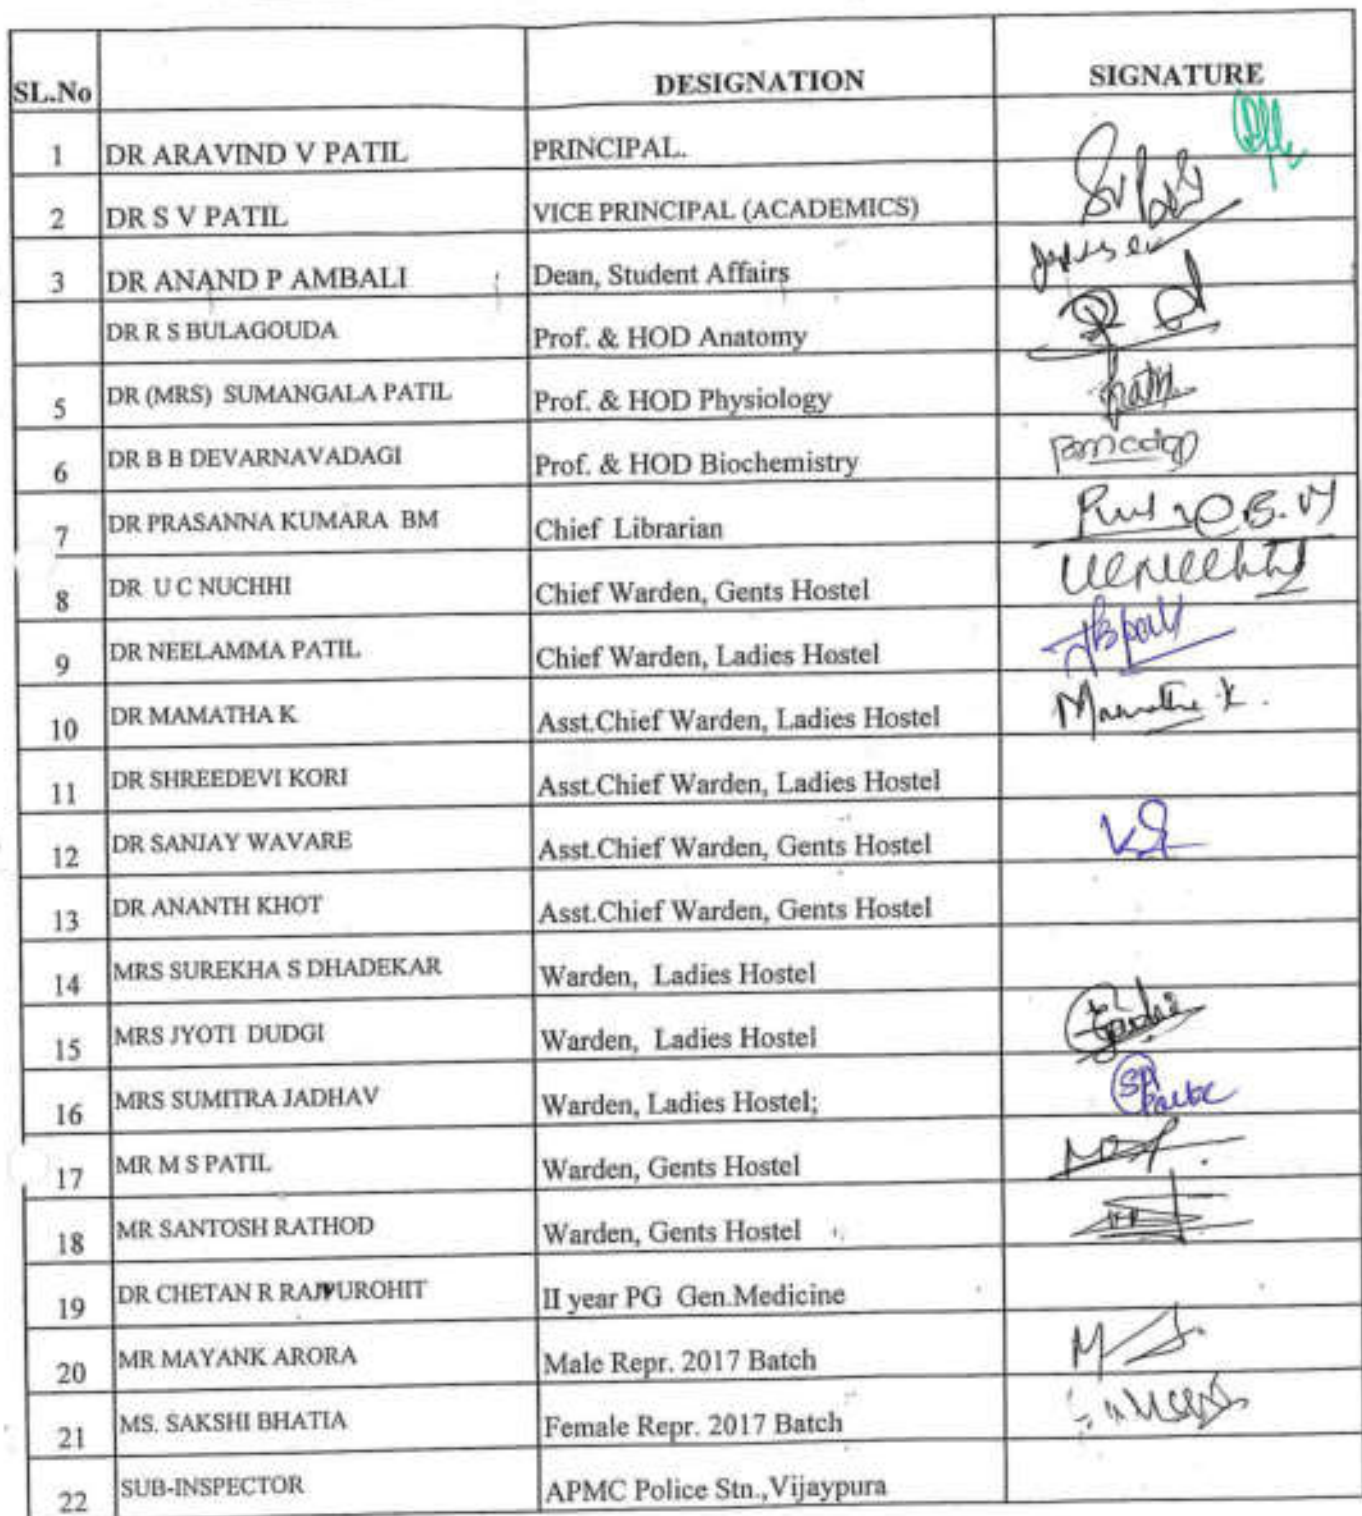 SL.No DESIGNATION SIGNATURE
1 DR ARAVIND V PATIL PRINCIPAL.
2 DR S V PATIL VICE PRINCIPAL (ACADEMICS)
3 DR ANAND P AMBALI Dean, Student Affairs
DR R S BULAGOUDA Prof. & HOD Anatomy
5 DR (MRS) SUMANGALA PATIL Prof. & HOD Physiology
6 DR B B DEVARNAVADAGI Prof. & HOD Biochemistry
7 DR PRASANNA KUMARA BM Chief Librarian
8 DR U C NUCHHI Chief Warden, Gents Hostel
9 DR NEELAMMA PATIL Chief Warden, Ladies Hostel
10 DR MAMATHA K Asst.Chief Warden, Ladies Hostel Mamatha K.
11 DR SHREEDEVI KORI Asst.Chief Warden, Ladies Hostel
12 DR SANJAY WAVARE Asst.Chief Warden, Gents Hostel
13 DR ANANTH KHOT Asst.Chief Warden, Gents Hostel
14 MRS SUREKHA S DHADEKAR Warden, Ladies Hostel
15 MRS JYOTI DUDGI Warden, Ladies Hostel
16 MRS SUMITRA JADHAV Warden, Ladies Hostel;
17 MR M S PATIL Warden, Gents Hostel
18 MR SANTOSH RATHOD Warden, Gents Hostel
19 DR CHETAN R RAJPUROHIT II year PG Gen.Medicine
20 MR MAYANK ARORA Male Repr. 2017 Batch
21 MS. SAKSHI BHATIA Female Repr. 2017 Batch
22 SUB-INSPECTOR APMC Police Stn.,Vijaypura